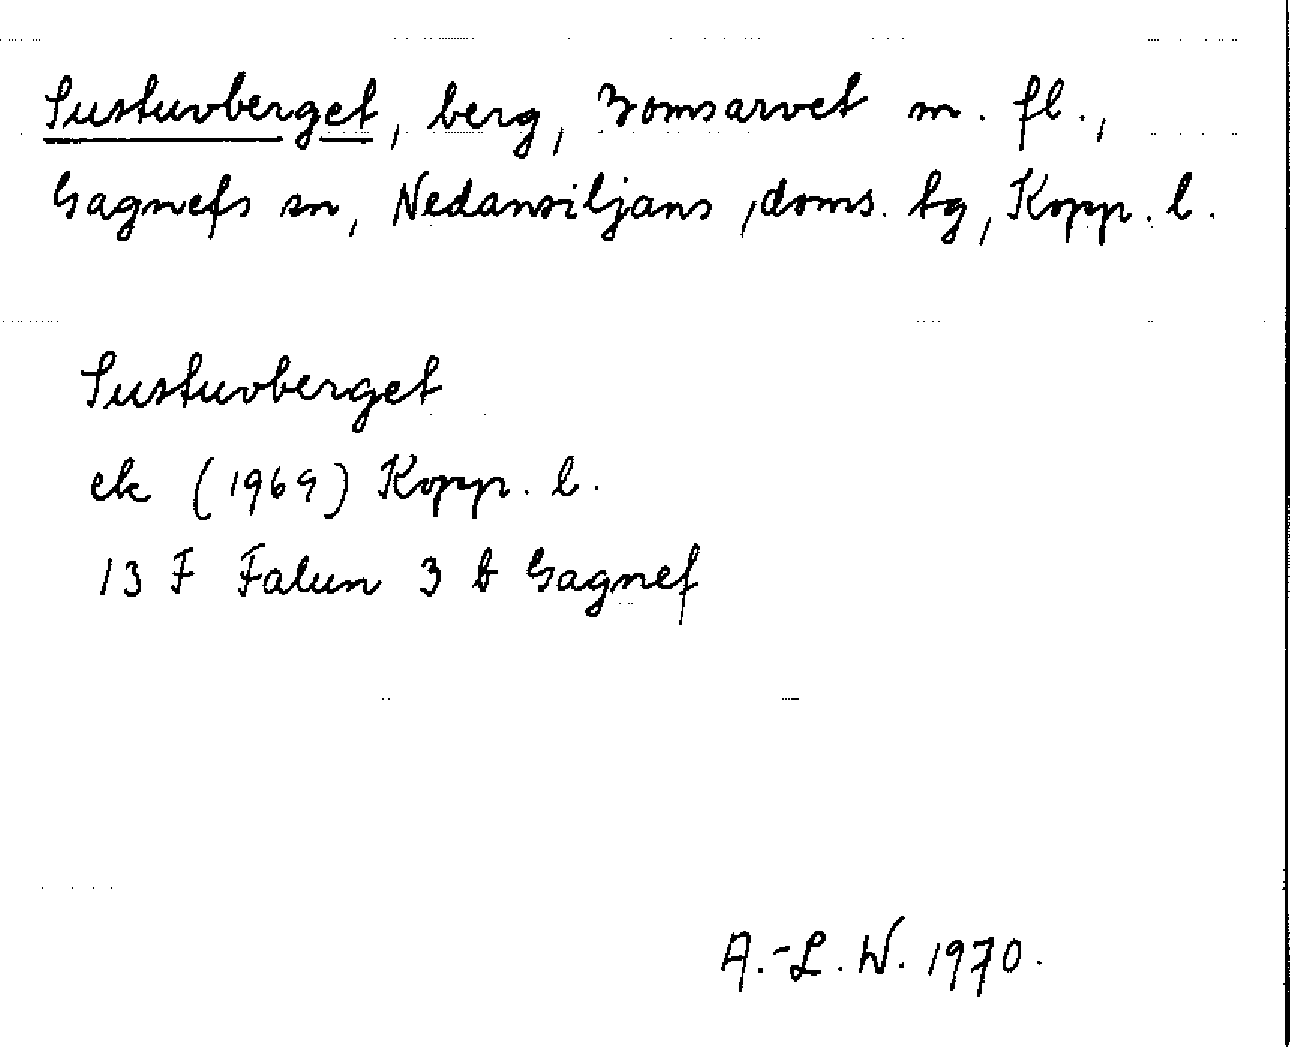 Sustuvberget, berg, Bomsarvet m. fl.,
Gagnefs sn, Nedansiljans ,doms. tg, Kopp. l.
Sustuvberget
ek (1969) Kopp. l.
13 F Falun 3 b Gagnef
A.-L. W. 1970.